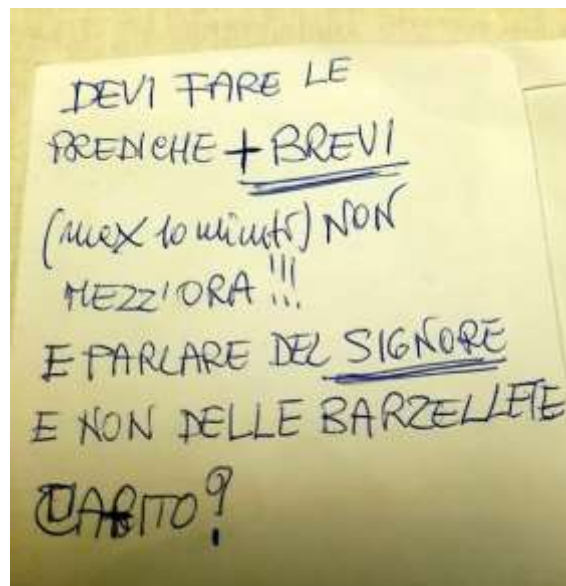 DEVI FARE LE
PREDICHE + BREVI
(max 10 minuti) NON
MEZZ'ORA !!!
E PARLARE DEL SIGNORE
E NON DELLE BARZELLETE
CAPITO?